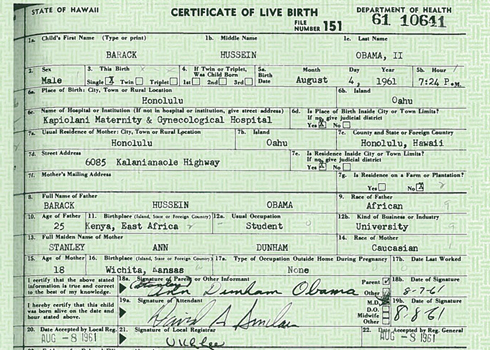 STATE OF HAWAII CERTIFICATE OF LIVE BIRTH DEPARTMENT OF HEALTH
FILE NUMBER 151 61 10641
1a. Child's First Name (Type or print) 1b. Middle Name 1c. Last Name
BARACK HUSSEIN OBAMA, II
2. Sex 3. This Birth 4. If Twin or Triplet, Was Child Born 5a. Birth Date Month Day Year 5b. Hour
Male Single X Twin Triplet 1st 2nd 3rd August 4, 1961 7:24 P.M.
6a. Place of Birth: City, Town or Rural Location 6b. Island
Honolulu Oahu
6c. Name of Hospital or Institution (If not in hospital or institution, give street address) 6d. Is Place of Birth Inside City or Town Limits? If no, give judicial district
Kapiolani Maternity & Gynecological Hospital Yes X No
7a. Usual Residence of Mother: City, Town or Rural Location 7b. Island 7c. County and State or Foreign Country
Honolulu Oahu Honolulu, Hawaii
7d. Street Address 7e. Is Residence Inside City or Town Limits? If no, give judicial district
6085 Kalanianaole Highway Yes X No
7f. Mother's Mailing Address 7g. Is Residence on a Farm or Plantation?
Yes No X
8. Full Name of Father 9. Race of Father
BARACK HUSSEIN OBAMA African
10. Age of Father 11. Birthplace (Island, State or Foreign Country) 12a. Usual Occupation 12b. Kind of Business or Industry
25 Kenya, East Africa Student University
13. Full Maiden Name of Mother 14. Race of Mother
STANLEY ANN DUNHAM Caucasian
15. Age of Mother 16. Birthplace (Island, State or Foreign Country) 17a. Type of Occupation Outside Home During Pregnancy 17b. Date Last Worked
18 Wichita, Kansas None
I certify that the above stated information is true and correct to the best of my knowledge. 18a. Signature of Parent or Other Informant Parent Other 18b. Date of Signature
(Stanley) Ann Dunham Obama 8-7-61
I hereby certify that this child was born alive on the date and hour stated above. 19a. Signature of Attendant M.D. D.O. Midwife Other 19b. Date of Signature
David A Sinclair 8-8-61
20. Date Accepted by Local Reg. 21. Signature of Local Registrar 22. Date Accepted by Reg. General
AUG -8 1961 AUG -8 1961